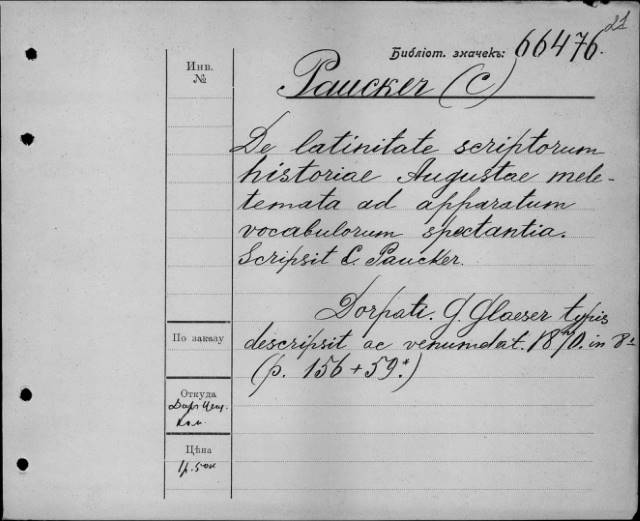 21
Библіот. значекъ: 66476.
Инв.
№
Paucker (C)
De latinitate scriptorum
historiae Augustae mele-
temata ad apparatum
vocabulorum spectantia.
Scripsit C. Paucker.
Dorpati. G. Glaeser typis
descripsit ac venumdat. 1870. in 8º
(p. 156 + 59*.)
По заказу
Откуда
Даръ Цен.
Ком.
Цѣна
1р. 50к